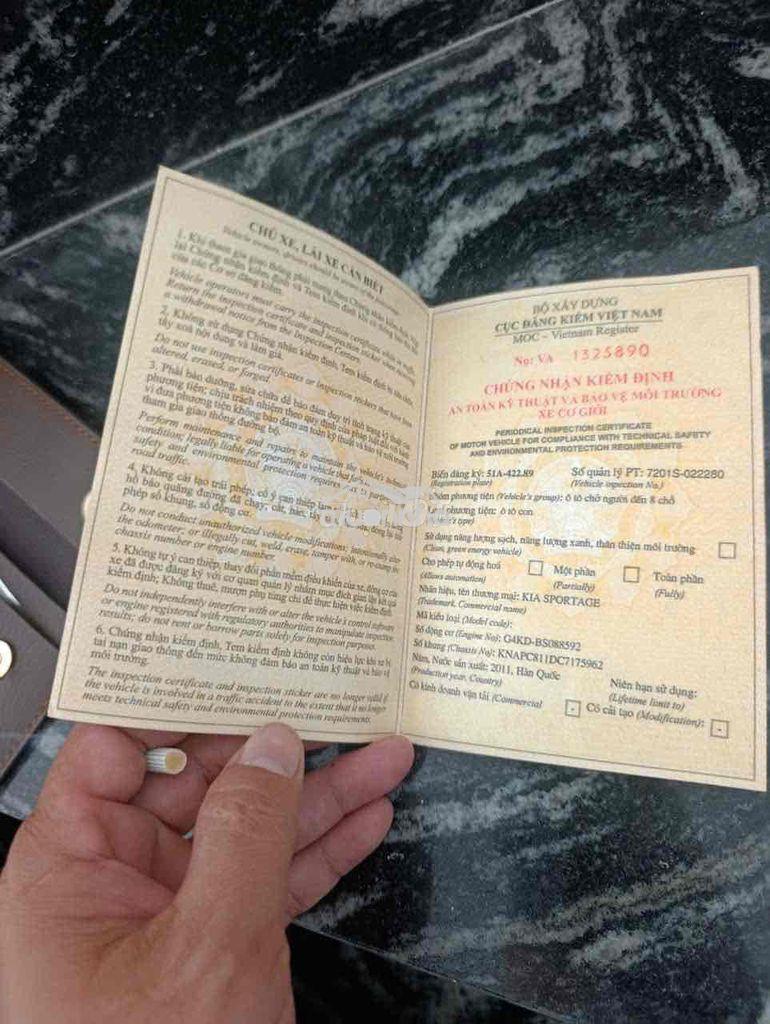 CHỦ XE, LÁI XE CẦN BIẾT
Vehicle owners, drivers should be aware of the
1. Khi tham gia giao thông phải mang theo Chứng nhận kiểm định
của các Cơ sở đăng kiểm.
Vehicle operators must carry the inspection certificate while in traffic,
Return the inspection certificate and inspection sticker when
a withdrawal notice from the Inspection Centers.
2. Không sử dụng Chứng nhận kiểm định, Tem kiểm định
tẩy xoá nội dung và làm giả.
Do not use inspection certificates or inspection stickers that have been
altered, erased, or forged.
3. Phải bảo dưỡng, sửa chữa để bảo đảm duy trì tình trạng kỹ thuật của
phương tiện; chịu trách nhiệm theo quy định của pháp luật đối với hành
vi đưa phương tiện không bảo đảm an toàn kỹ thuật và bảo vệ môi trường
tham gia giao thông đường bộ.
Perform maintenance and repairs to maintain the vehicle's technical
condition; legally liable for operating a vehicle that fails to
safety and environmental protection requires
road traffic.
4. Không cải tạo trái phép; cố ý can thiệp làm
hồ báo quãng đường đã chạy; cắt, hàn, tẩy
phép số khung, số động cơ.
Do not conduct unauthorized vehicle modification; intentionally alter
the odometer; or illegally cut, weld, erase, tamper with, or re-stamp the
chassis number or engine number.
5. Không tự ý can thiệp, thay đổi phần mềm điều khiển của xe, động cơ của
xe đã được đăng ký với cơ quan quản lý nhằm mục đích gian lận kết quả
kiểm định; Không thuê, mượn phụ tùng chỉ để thực hiện việc kiểm định.
Do not independently interfere with or alter the vehicle's control software
or engine registered with regulatory authorities to manipulate inspection
results; do not rent or borrow parts solely for inspection purposes.
6. Chứng nhận kiểm định, Tem kiểm định không còn hiệu lực khi xe bị
tai nạn giao thông đến mức không đảm bảo an toàn kỹ thuật và bảo vệ
môi trường.
The inspection certificate and inspection sticker are no longer valid if
the vehicle is involved in a traffic accident to the extent that it no longer
meets technical safety and environmental protection requirements.
BỘ XÂY DỰNG
CỤC ĐĂNG KIỂM VIỆT NAM
MOC - Vietnam Register
No: VA 1325890
CHỨNG NHẬN KIỂM ĐỊNH
AN TOÀN KỸ THUẬT VÀ BẢO VỆ MÔI TRƯỜNG
XE CƠ GIỚI
PERIODICAL INSPECTION CERTIFICATE
OF MOTOR VEHICLE FOR COMPLIANCE WITH TECHNICAL SAFETY
AND ENVIRONMENTAL PROTECTION REQUIREMENTS
Biển đăng ký: 51A-422.89 Số quản lý PT: 7201S-022280
(Registration plate) (Vehicle inspection No.)
Nhóm phương tiện (Vehicle's group): ô tô chở người đến 8 chỗ
phương tiện: ô tô con
(Vehicle's type)
Sử dụng năng lượng sạch, năng lượng xanh, thân thiện môi trường
(Clean, green energy vehicle)
Cho phép tự động hoá Một phần Toàn phần
(Allows automation) (Partially) (Fully)
Nhãn hiệu, tên thương mại: KIA SPORTAGE
(Trademark, Commercial name)
Mã kiểu loại (Model code):
Số động cơ (Engine No): G4KD-BS088592
Số khung (Chassis No): KNAPC811DC7175962
Năm, Nước sản xuất: 2011, Hàn Quốc Niên hạn sử dụng:
(Production year, Country) (Lifetime limit to)
Có kinh doanh vận tải (Commercial - Có cải tạo (Modification): -